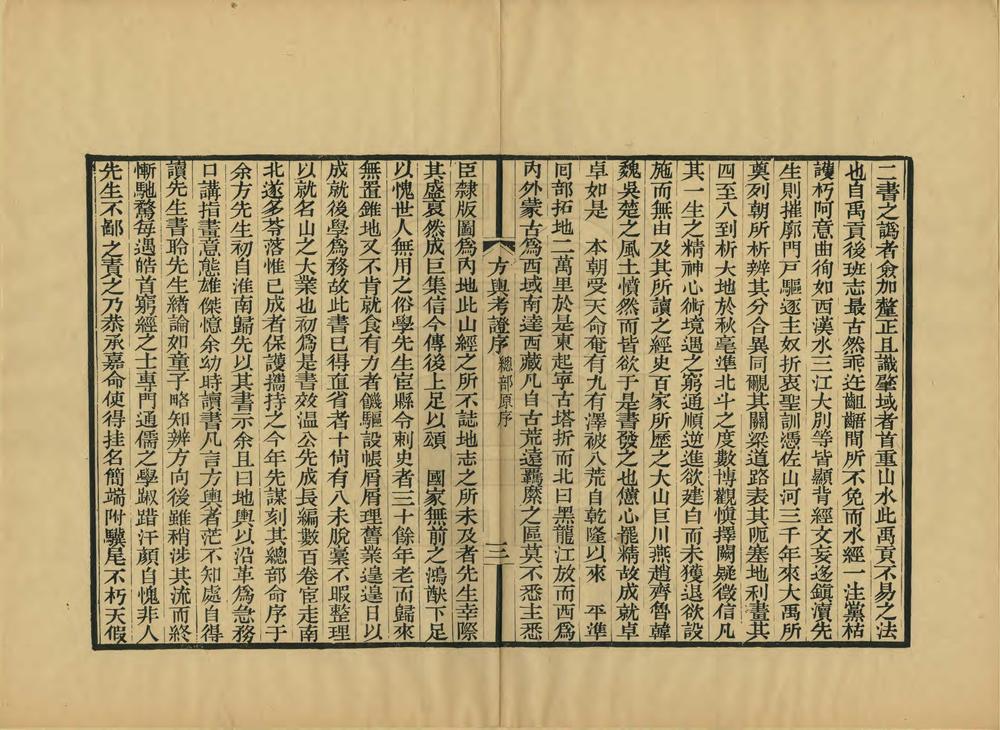 二書之譌者僉加釐正且識壄域者首重山水此禹貢不易之法
也自禹貢後班志最古然乖迕齟齬間所不免而水經一注黨枯
護朽阿意曲徇如西漢水三江大別等皆顯背經文妄迻鎭瀆先
生則摧廓門戸驅逐主奴折衷聖訓憑佐山河三千年來大禹所
奠列朝所析辨其分合異同覼其關梁道路表其阨塞地利畫其
四至八到析大地於秋毫準北斗之度數博觀愼擇闕疑徵信凡
其一生之精神心術境遇之窮通順逆進欲建白而未獲退欲設
施而無由及其所讀之經史百家所歷之大山巨川燕趙齊魯韓
魏吳楚之風土憤然而皆欲于是書發之也億心罷精故成就卓
卓如是　本朝受天命奄有九有澤被八荒自乾隆以來　平準
囘部拓地二萬里於是東起寧古塔折而北曰黑龍江放而西爲
內外蒙古爲西域南達西藏凡自古荒遠羈縻之區莫不悉主悉
方輿考證序 總部原序 三
臣隸版圖爲內地此山經之所不誌地志之所未及者先生幸際
其盛裒然成巨集信今傳後上足以頌　國家無前之鴻猷下足
以愧世人無用之俗學先生宦縣令刺史者三十餘年老而歸來
無置錐地又不肯就食有力者饑驅設帳屑屑理舊業遑遑日以
成就後學爲務故此書已得直省者十尙有八未脫稾不暇整理
以就名山之大業也初爲是書效溫公先成長編數百卷宦走南
北遂多苓落惟已成者保護攜持之今年先謀刻其總部命序于
余方先生初自淮南歸先以其書示余且曰地輿以沿革爲急務
口講指畫意態雄傑憶余幼時讀書凡言方輿者茫不知處自得
讀先生書聆先生緒論如童子略知辨方向後雖稍涉其流而終
慚馳騖每遇皓首窮經之士專門通儒之學踧踖汗顏自愧非人
先生不鄙之責之乃恭承嘉命使得挂名簡端附驥尾不朽天假